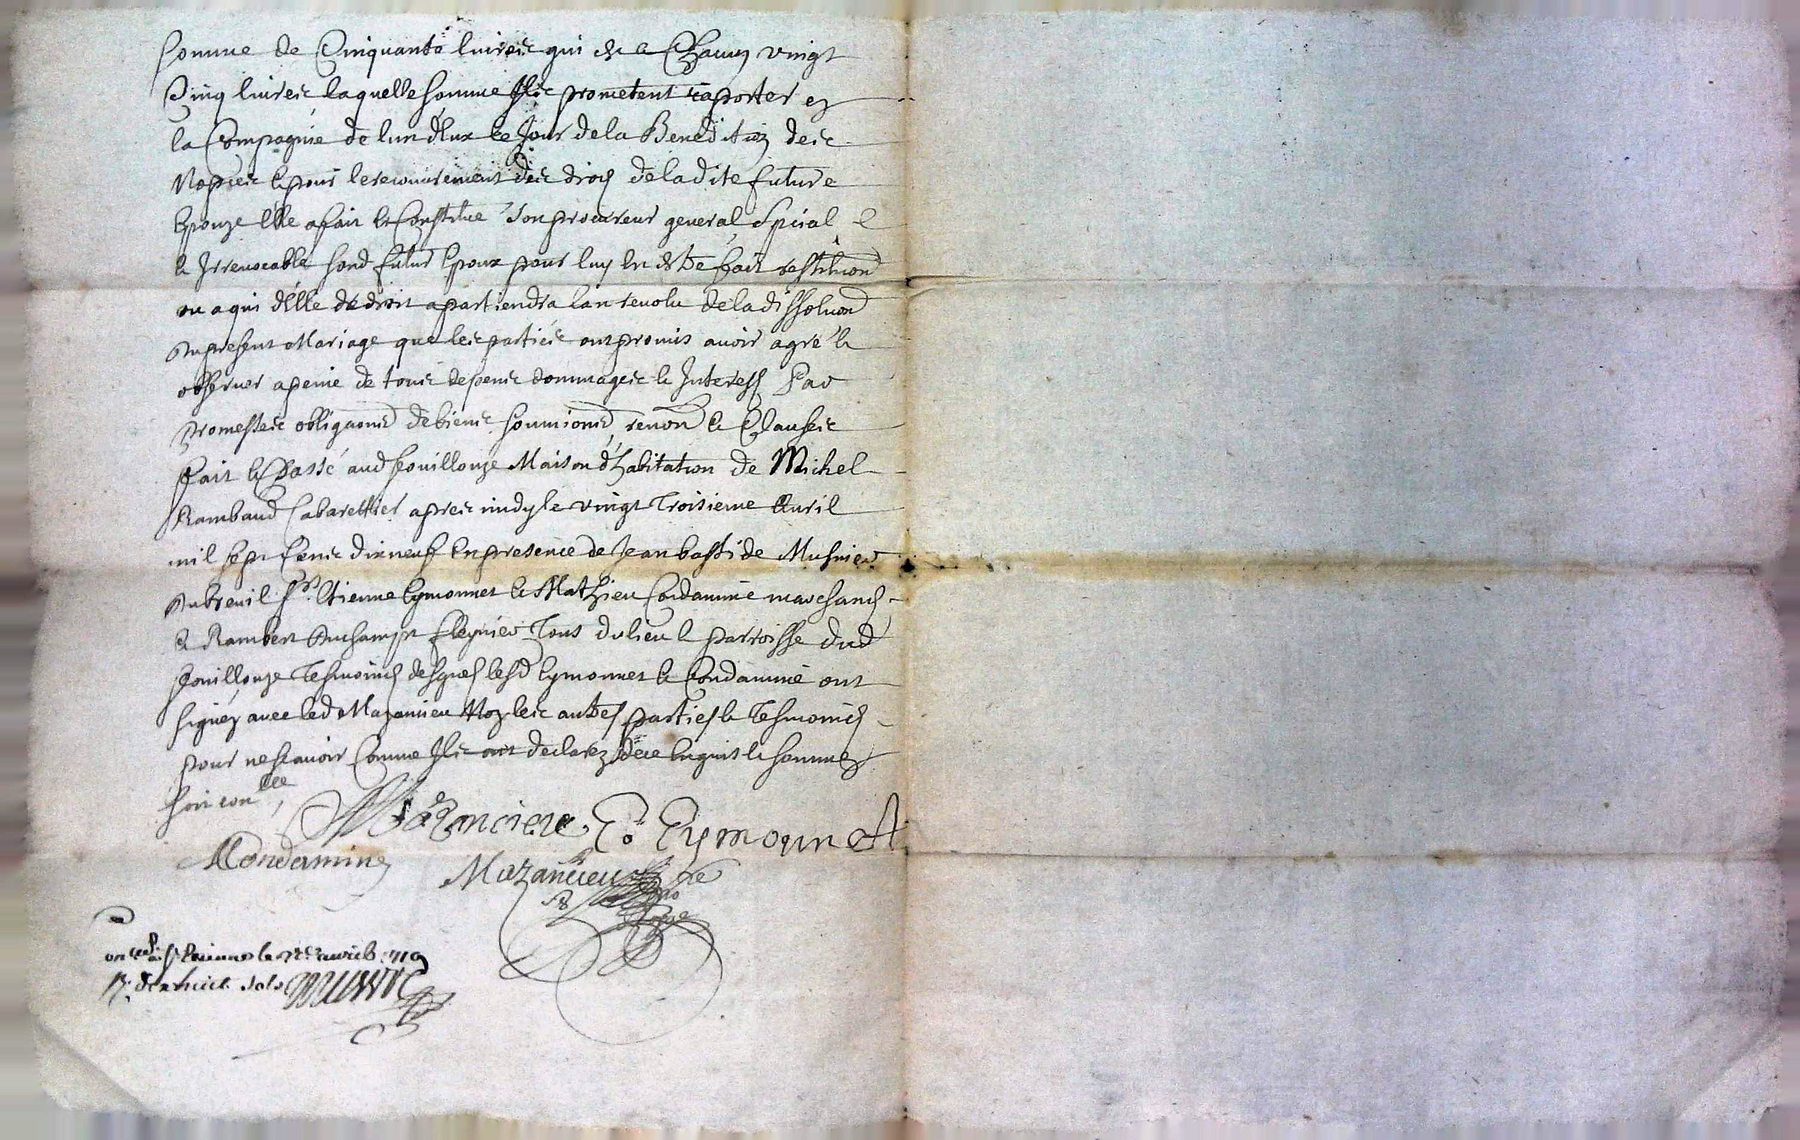 Somme de Cinquante livres qui est a Chacun vingt
Cinq livres laquelle somme Ils prometent raporter en
la Compagnie de lun dEux le Jour de la Benediction des
Nopces Et pour le recouvrement des droits de ladite future
Epouze Elle a fait Et Constitué son procureur general, Spécial, E
Et Irrevocable sond futur Epoux pour luy En Estre fait restitution
ou a qui dElle de droit apartiendra lan revolu de la dissolution
du present Mariage que les parties ont promis avoir agré Et
observer a peine de tous depens dommages Et Interests Par
promesses obligaons de biens soumions renon Et Clauses
fait Et Passé aud fouillouze Maison d'habitation de Michel
Rambaud Cabarettier apres midy le vingt Troisieme Avril
mil sept Cents dix neuf En presence de Jean bastide Musnier
dubreuil Sr Etienne Eymonnet Et Mathieu Condamine marchands
Et Rambert duchamps Tous du lieu Et parroisse dud
fouillouze Tesmoins desquels lesd Eymonnet Et Condamine ont
signéz avec led Mazencieu Non les autres parties Et Tesmoins
pour ne scavoir Comme Ils ont declarez de ce Enquis Et sommez
soit conllé
Mazencieu E. Eymonnet
MCondamine
Mazancieu
St Etienne le avril 1719
R. dix huict sols